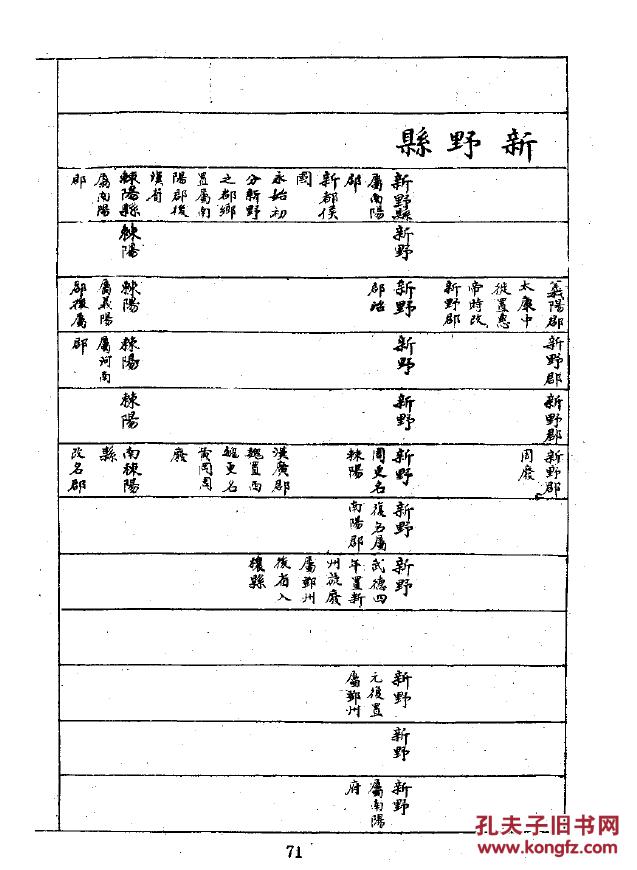 新野縣
新野縣
屬南陽
郡
新都侯
國
永始初
分新野
之都鄉
置屬南
陽郡後
漢省
棘陽縣
屬南陽
郡
新野
棘陽
義陽郡
太康中
從置惠
帝時改
新野郡
新野
郡治
棘陽
屬義陽
郡後屬
新野郡
新野
棘陽
屬河南
郡
新野郡
新野
棘陽
新野郡
周廢
新野
周更名
棘陽
漢廣郡
魏置西
魏更名
黄岡周
廢
南棘陽
縣
改名郡
新野
復名屬
南陽郡
新野
武德四
年置新
州旋廢
屬鄧州
後省入
穰縣
新野
元復置
屬鄧州
新野
新野
屬南陽
府
71
孔夫子旧书网
www.kongfz.com